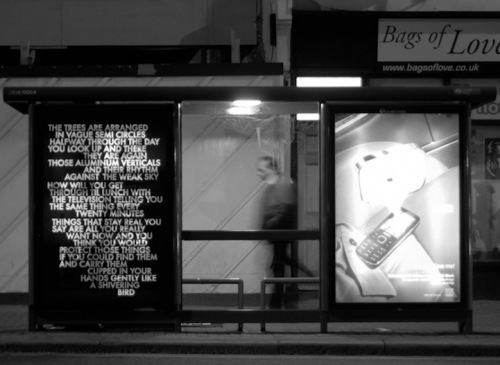 Bags of Love
www.bagsoflove.co.uk
THE TREES ARE ARRANGED
IN VAGUE SEMI CIRCLES
HALFWAY THROUGH THE DAY
YOU LOOK UP AND THERE
THEY ARE AGAIN
THOSE ALUMINUM VERTICALS
AND THEIR RHYTHM
AGAINST THE WEAK SKY
HOW WILL YOU GET
THROUGH TIL LUNCH WITH
THE TELEVISION TELLING YOU
THE SAME THING EVERY
TWENTY MINUTES
THINGS THAT STAY REAL YOU
SAY ARE ALL YOU REALLY
WANT NOW AND YOU
THINK YOU WOULD
PROTECT THOSE THINGS
IF YOU COULD FIND THEM
AND CARRY THEM
CUPPED IN YOUR
HANDS GENTLY LIKE
A SHIVERING
BIRD